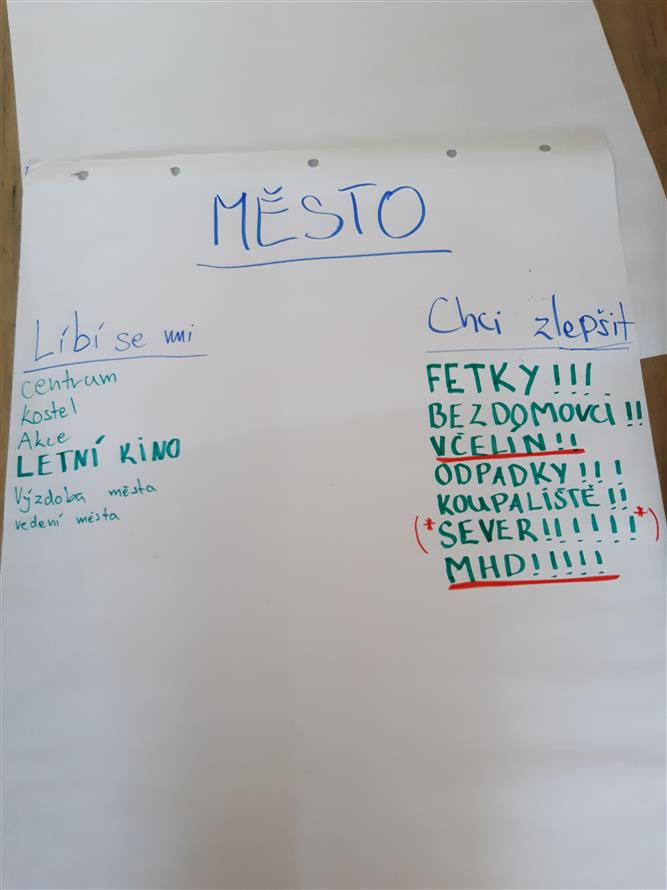 MĚSTO
Líbí se mi
centrum
kostel
Akce
LETNÍ KINO
Výzdoba města
vedení města
Chci zlepšit
FETKY!!!
BEZDOMOVCI!!
VČELÍN!!
ODPADKY!!!
KOUPALIŠTĚ!!
(*SEVER!!!!!!*)
MHD!!!!!